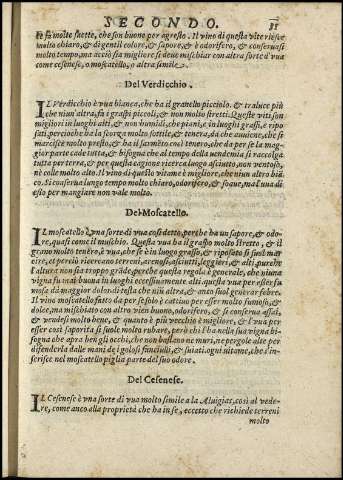 SECONDO. 35
fa molto strette, che son buone per agresto. Il vino di questa vite riesce
molto chiaro, & di gentil colore, & sapore, & è odorifero, & conseruasi
molto tempo, ma acciò sia migliore si deue mischiar con altra sorte d'vua
come cesenese, o moscatello, o altra simile.
Del Verdicchio.
IL Verdicchio è vua bianca, che ha il granello picciolo, & traluce più
che niun'altra, fa i graspi piccoli, & non molto stretti. Queste viti son
migliori in luoghi alti, & non humidi, che piani, e in luoghi grassi, & ripo
sati, percioche ha la scorza molto sottile, & tenera, da che auuiene, che si
marcisce molto presto, & ha il sarmēto così tenero, che da per se la mag-
gior parte cade tutta, & bisogna che al tempo della uendemia si raccolga
tutta per terra, & per questa cagione ricerca luogo asciutto, non ventoso,
nè colle molto alto. Il vino di questo vitame è migliore, che niun altro biā
co. Si conserua lungo tempo molto chiaro, odorifero, & soaue, ma l'vua di
esso per mangiare non vale molto.
Del Moscatello.
IL moscatello è vna sorte di vua così detto, perche ha un sapore, & odo-
re, quasi come il muschio. Questa vua ha il graspo molto stretto, & il
grano molto tenero, & vuo, che se è in luogo grasso, & riposato si suol mar
cire, et perciò ricercano terreni, arenosi, asciutti, leggieri, & alti, purche
l'altura non sia troppo grāde, perche questa regola è generale, che niuna
vigna fu mai buona in luoghi eccessiuamente alti. questa vua per esser fu
mosa dà maggior dolor di testa che niū altra, & anco suol generar febre.
Il vino moscatello fatto da per se solo è cattiuo per esser molto fumoso, &
dolce, ma mischiato con altro vien buono, odorifero, & se conserua assai,
& vendesi molto bene, & quanto è più vecchio è migliore, & l'vua per
esser così saporita si suole molto rubare, però chi l'ha nella sua vigna bi-
sogna che apra ben gli occhi, che non bastano ne muri, ne pergole alte per
difenderla dalle mani de i golosi fanciulli, & suiati. ogni uitame, che s'in-
serisce nel moscatello piglia parte del suo odore.
Del Cesenese.
IL Cesenese è vna sorte di vua molto simile a la Aluigias, così al vede-
re, come anco alla proprietà che ha in se, eccetto che richiede terreni
molto